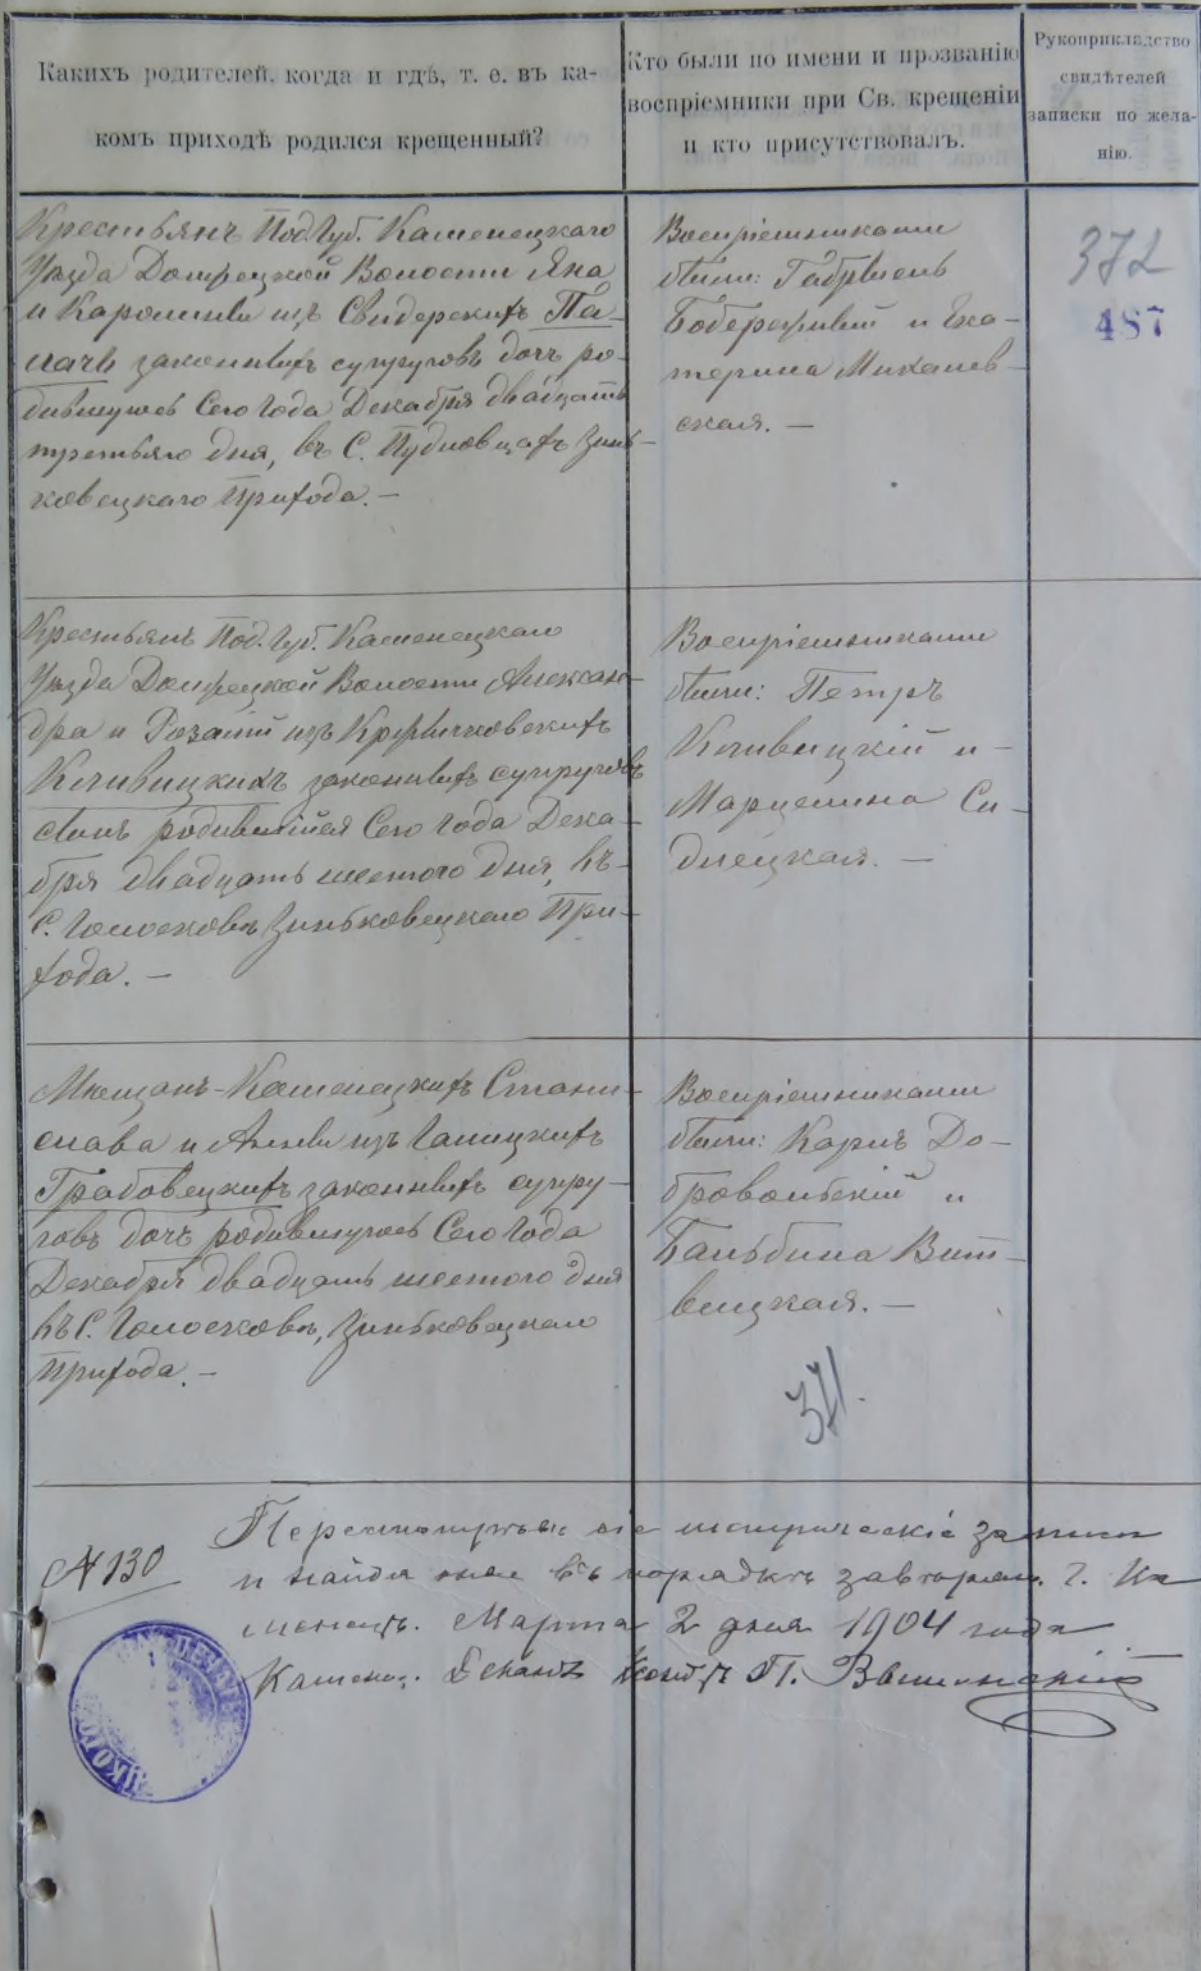 Какихъ родителей, когда и гдѣ, т. е. въ ка-
комъ приходѣ родился крещенный?
Кто были по имени и прозванію
воспріемники при Св. крещеніи
и кто присутствовалъ.
Рукоприкладство
свидѣтелей
записки по жела-
нію.
372
487
Крестьянъ Под. Губ. Каменецкаго
Уѣзда Должецкой Волости Яна
и Каролины изъ Свидерскихъ Па-
лачъ законныхъ супруговъ дочь ро-
дившуюся Сего Года Декабря двадцать
третьяго дня, въ С. Пудловцахъ Зинь-
ковецкаго Прихода. —
Воспріемниками
были: Габріель
и Ека-
терина Михалев-
ская. —
Крестьянъ Под. Губ. Каменецкаго
Уѣзда Должецкой Волости Алексан-
дра и Розаліи изъ
законныхъ супруговъ
сынъ родившійся Сего Года Дека-
бря двадцать шестого дня, въ
С. Голосковѣ Зиньковецкаго При-
хода. —
Воспріемниками
были: Петръ
и —
Марцелина Си-
днецкая. —
Мѣщанъ-Каменецкихъ Стани-
слава и Анны изъ Галицкихъ
Грабовецкихъ законныхъ супру-
говъ дочь родившуюся Сего Года
Декабря двадцать шестого дня
въ С. Голосковѣ, Зиньковецкаго
Прихода. —
Воспріемниками
были: Карлъ До-
бровольскій и
Бальбина Вит-
вицкая. —
371.
№ 130
сіе метрическіе записи
и найдя оные въ порядкѣ завѣряю. Г. Ка-
менецъ. Марта 2 дня 1904 года
Каменец. Деканъ Ксендзъ П.